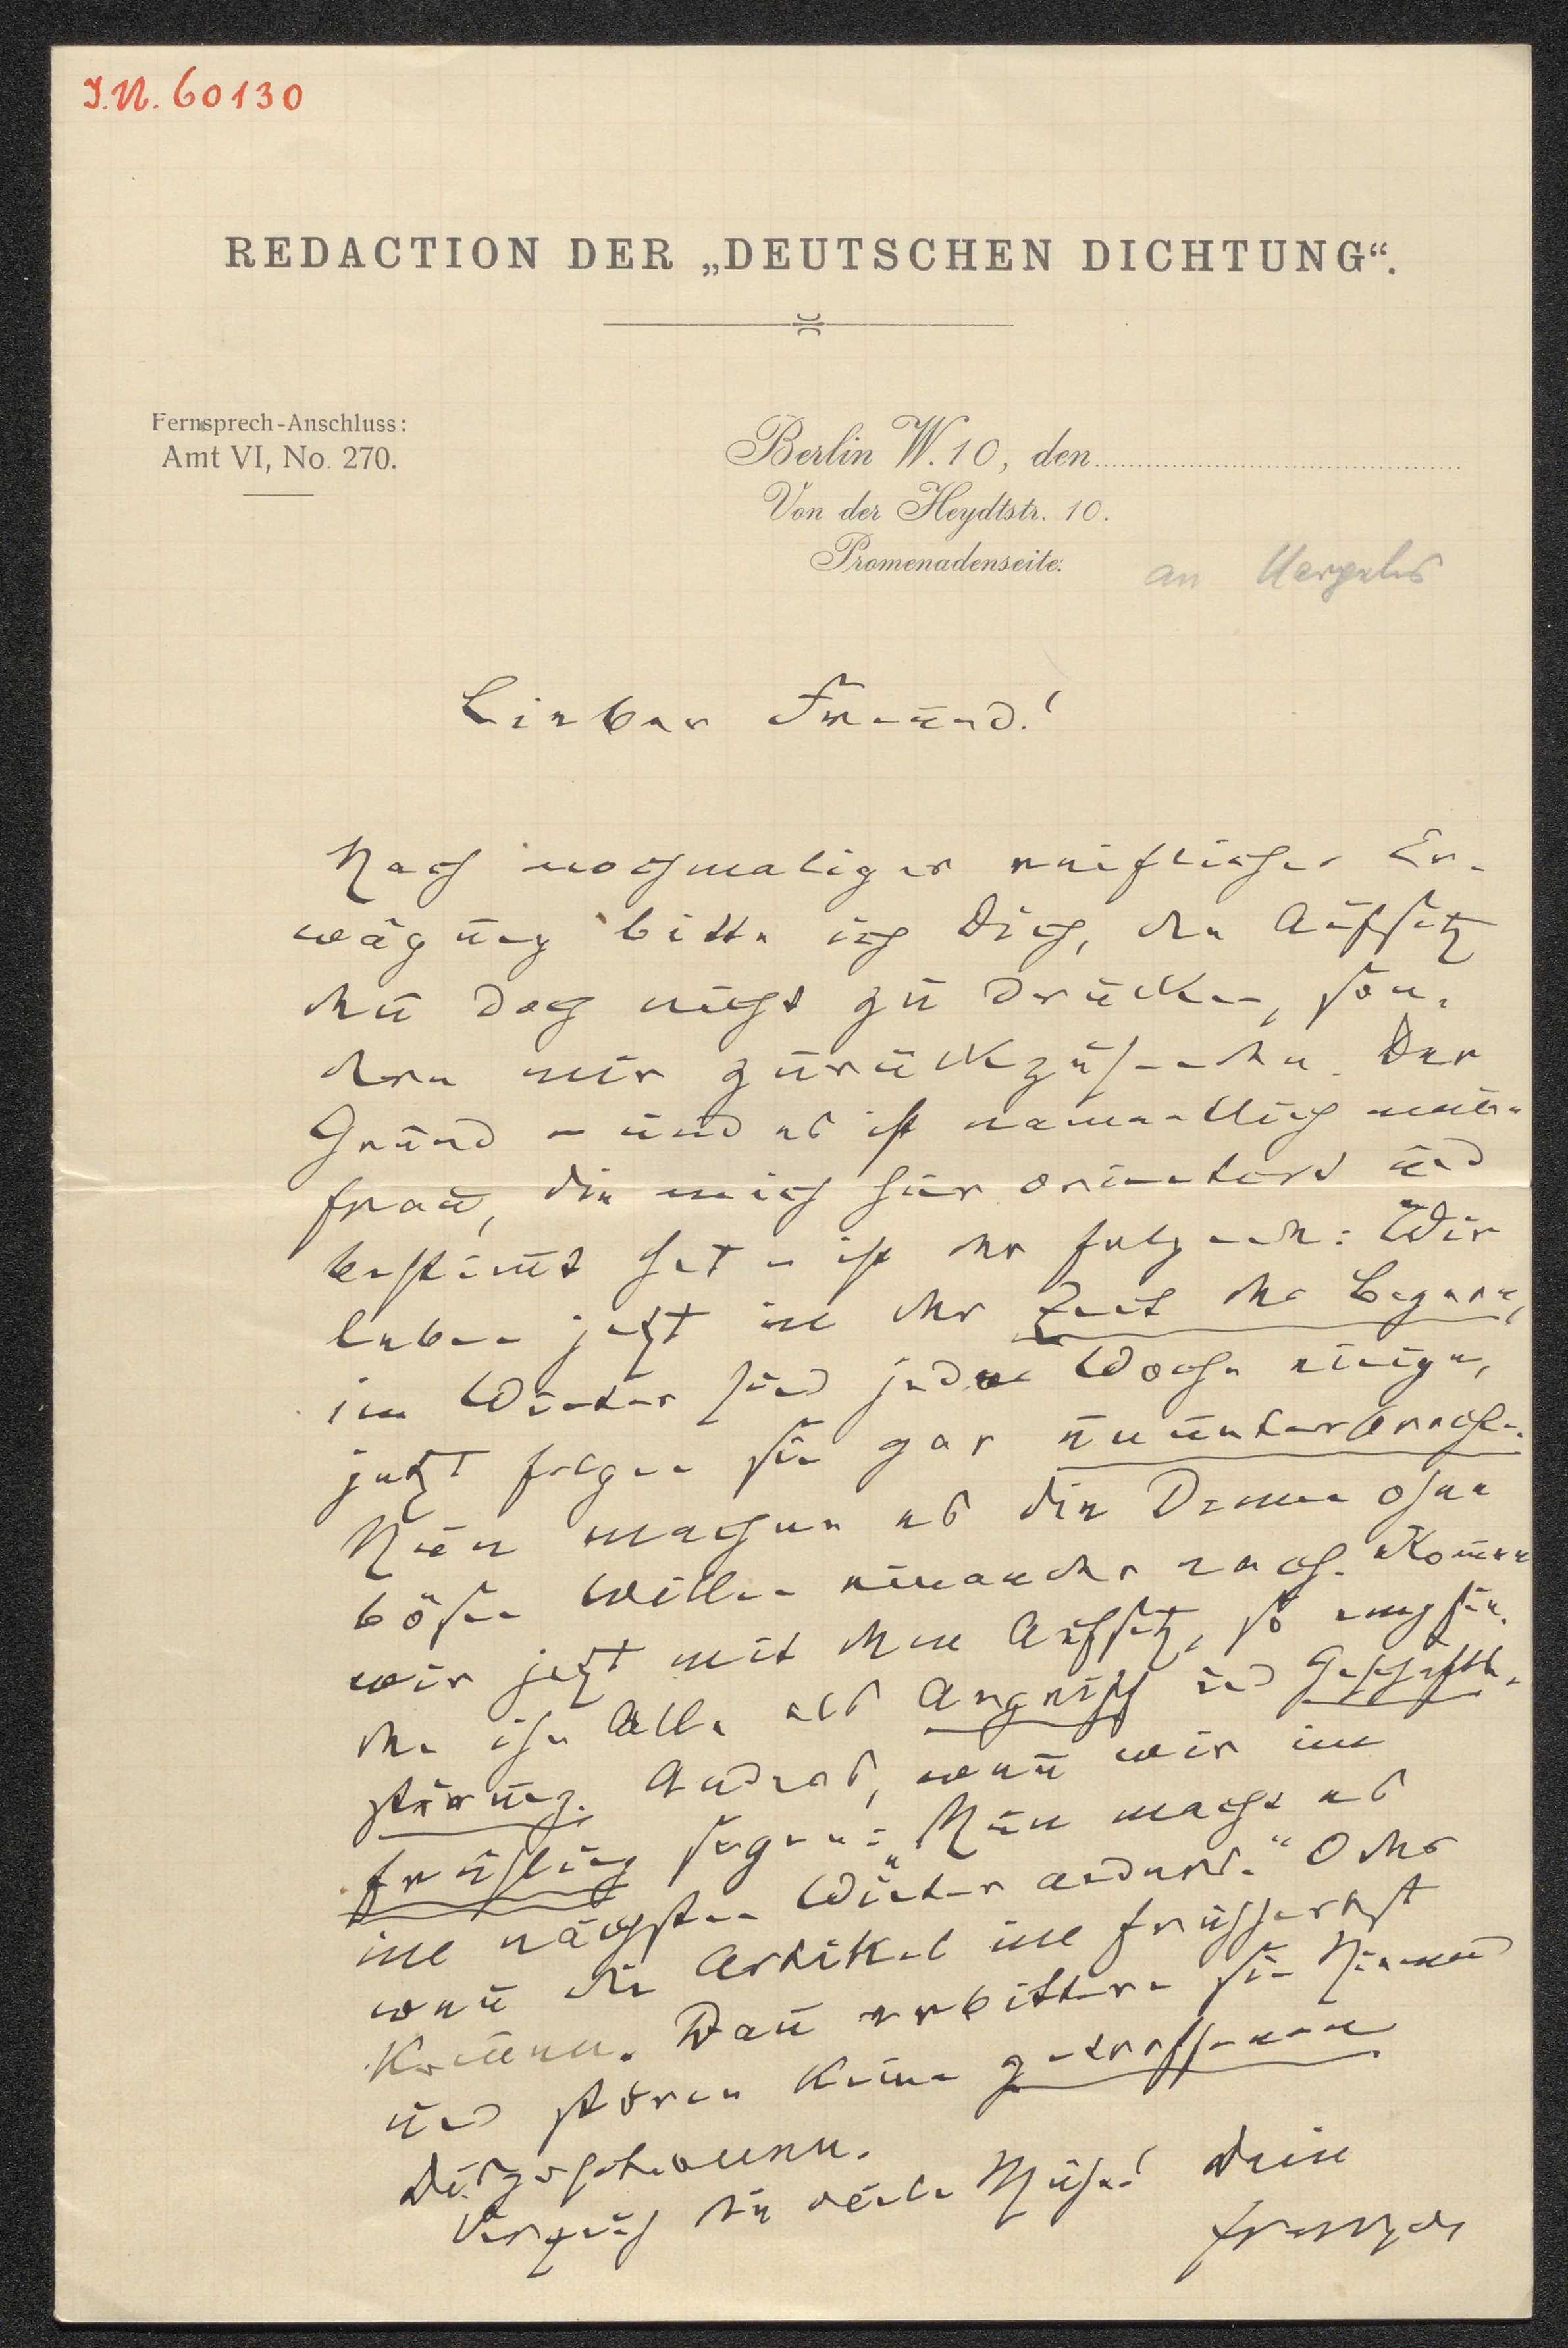 J.N. 60130
REDACTION DER „DEUTSCHEN DICHTUNG“.
Fernsprech-Anschluss:
Amt VI, No. 270.
Berlin W. 10, den
Von der Heydtstr. 10.
Promenadenseite.
an
Lieber Freund!
Nach nochmaliger reiflicher Er-
wägung bitte ich Dich, den Aufsatz
nun doch nicht zu drucken, son-
dern mir zurückzusenden. Der
Grund – und es ist namentlich meine
Frau, die mich hier orientirt und
bestimt hat – ist der folgende: Wir
leben jetzt in der Zeit der
im Winter sind jede Woche einige,
jetzt folgen sie gar ununterbrochen.
Nun machen es die Damen ohne
bösen Willen einander nach. Komen
wir jetzt mit dem Aufsatz, so empfin-
den ihn Alle als Angriff und Geschäfts-
störung. Anders, wenn wir im
Frühling sagen: „Nun macht es
im nächsten Winter anders.“ Oder
wenn die Artikel im Frühherbst
komen. Dan erbittern sie Niemand
und stören keine getroffenen
Dispositionen.
Verzeih die viele Mühe! Dein
Franzos